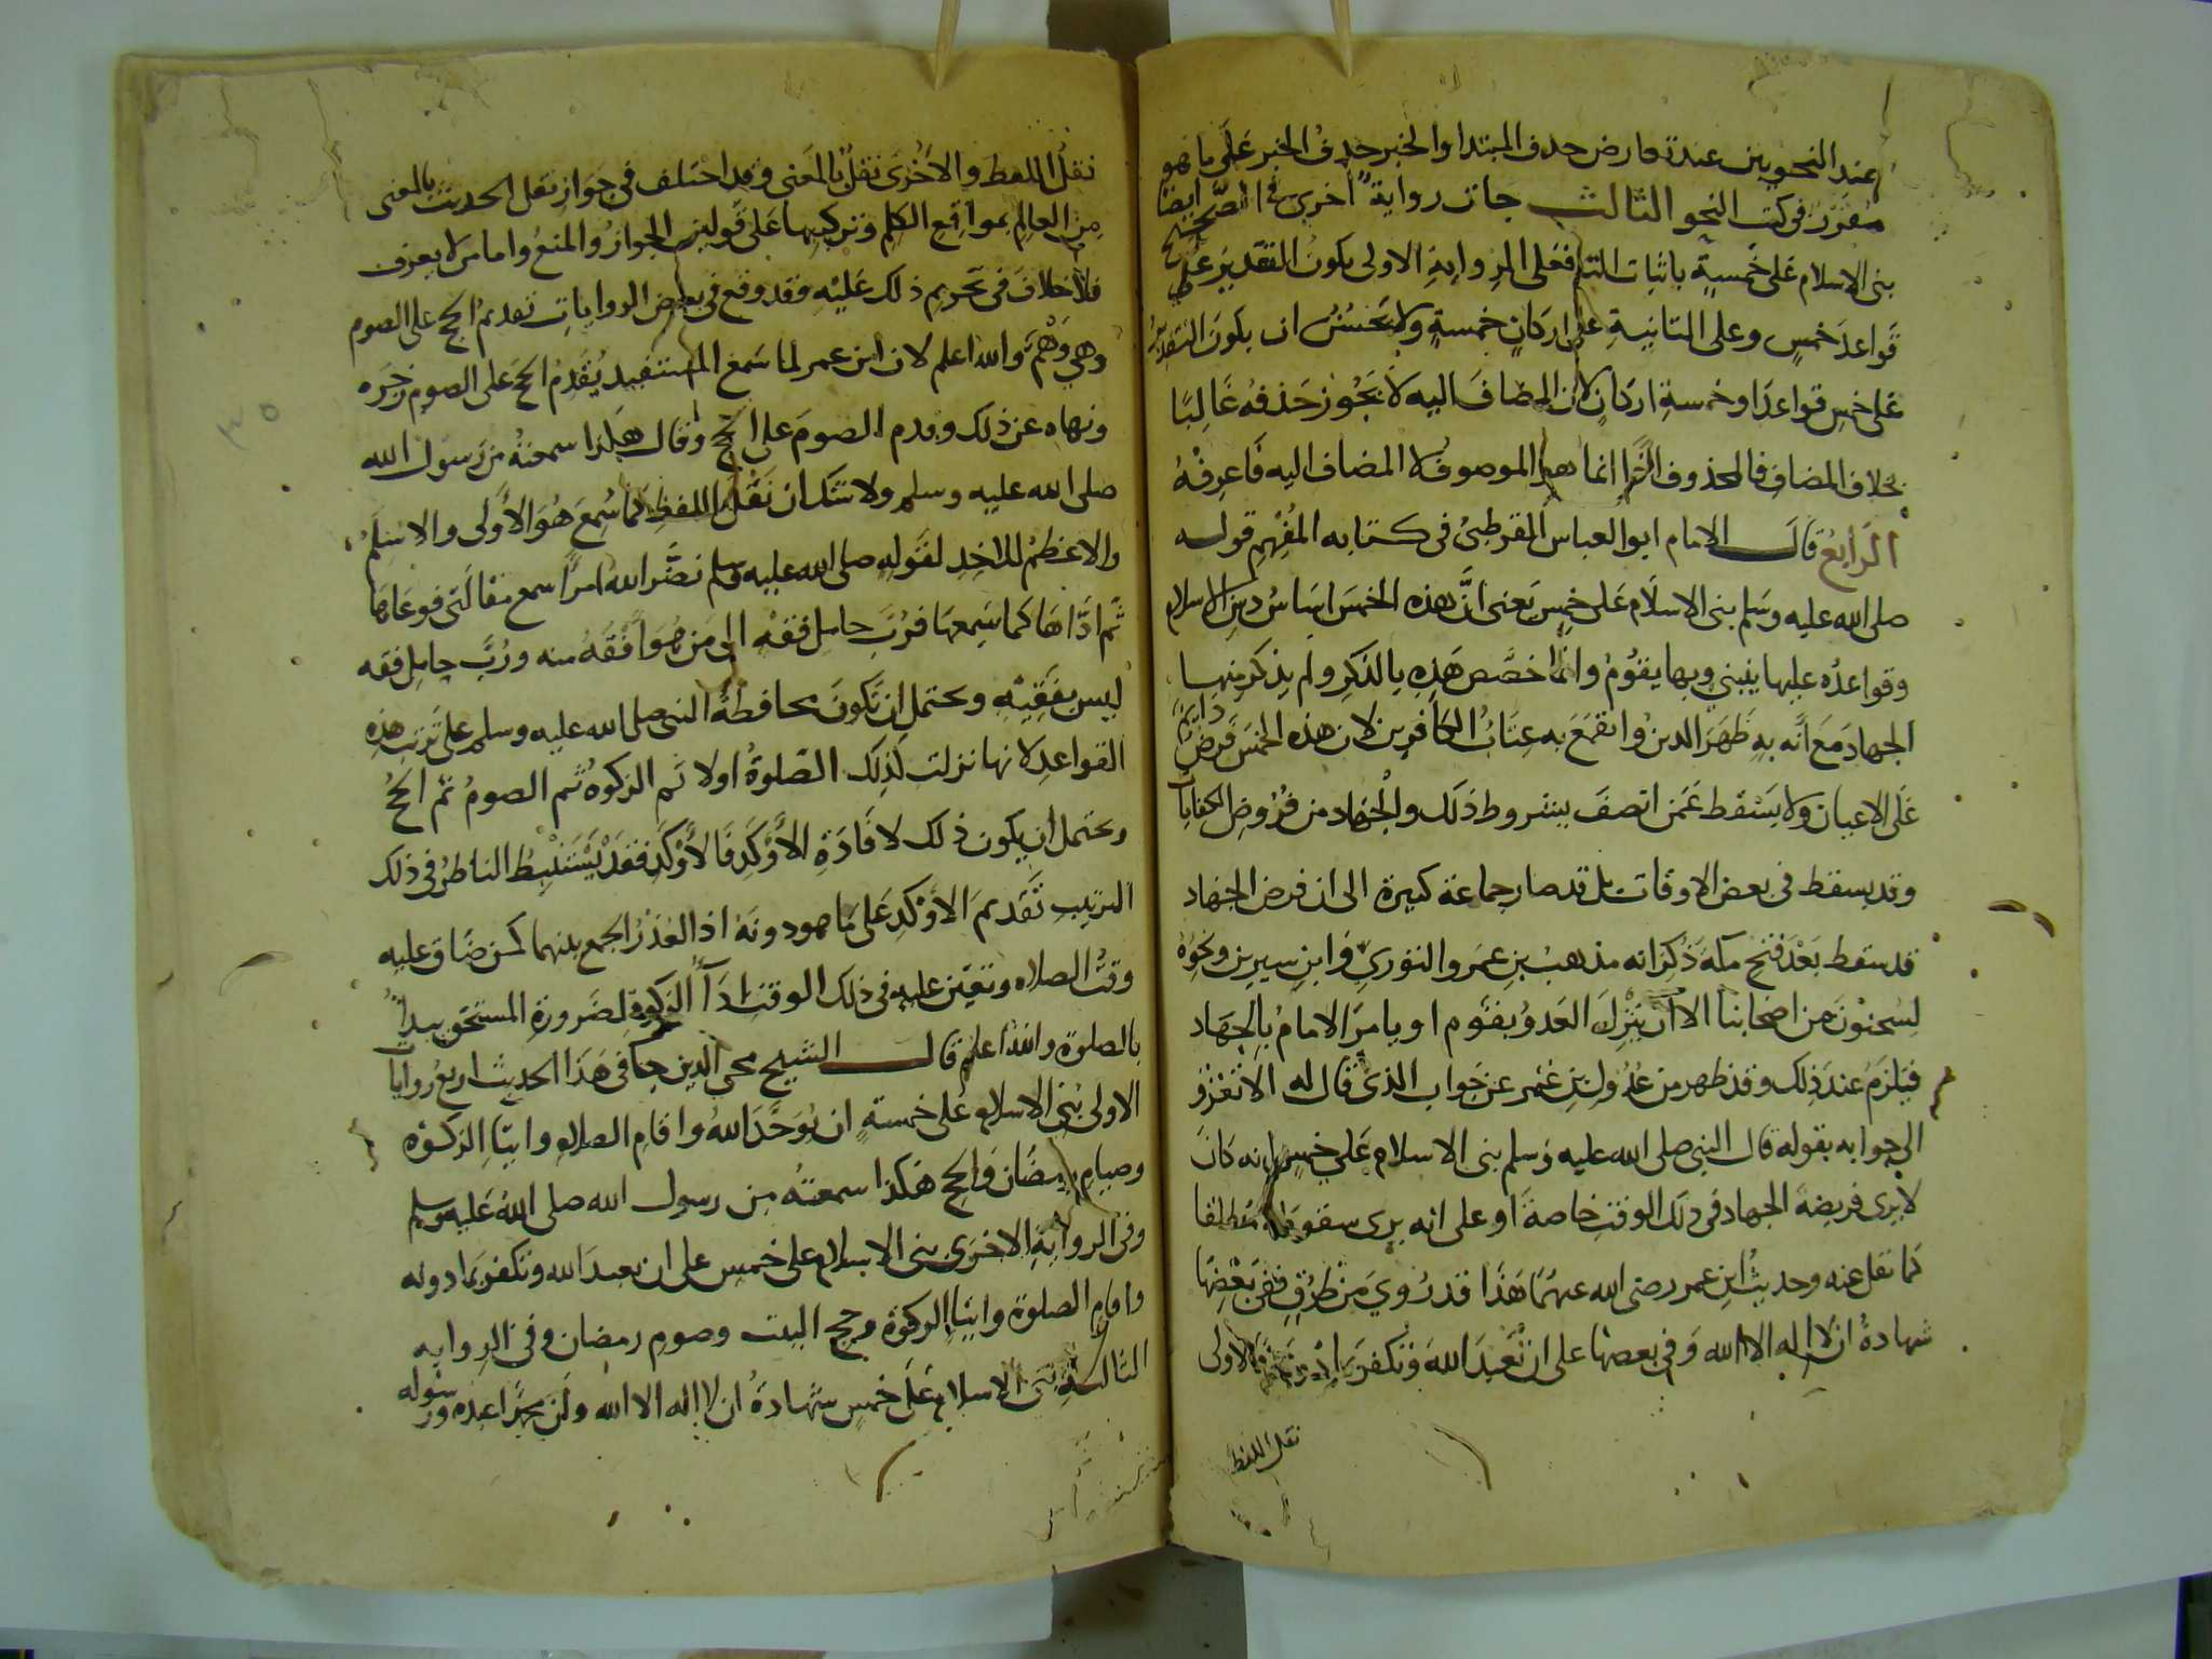 عند النحويين عند تعارض حذف المبتدا والخبر حذف الخبر على ما هو
مقرر في كتب النحو الثالث جات رواية اخرى في الصحيح ايضا
بنى الاسلام على خمسة باثبات التا فعلى الرواية الاولى يكون التقدير على
قواعد خمس وعلى الثانية على اركان خمسة ولا يحسن ان يكون التقدير
على خمس قواعد او خمسة اركان لان المضاف اليه لا يجوز حذفه غالبا
بخلاف المضاف فالمحذوف انما هو الموصوف لا المضاف اليه فاعرفه
الرابع قال الامام ابو العباس القرطبي في كتابه المفهم قوله
صلى الله عليه وسلم بنى الاسلام على خمس يعنى ان هذه الخمس اساس دين الاسلام
وقواعده عليها ينبني وبها يقوم وانما خصص هذه بالذكر ولم يذكر منها
الجهاد مع انه به ظهر الدين وانقمع به عتاب الكافرين لان هذه الخمس فرض دايم
على الاعيان ولا يسقط عمن اتصف بشروط ذلك والجهاد من فروض الكفايات
وقد يسقط في بعض الاوقات بل قد صار جماعة كبيرة الى ان فرض الجهاد
قد سقط بعد فتح مكة وذكر انه مذهب بن عمر والثوري وابن سيرين ونحوه
لسحنون من اصحابنا الا ان ينزل العدو بقوم او يامر الامام بالجهاد
فيلزم عند ذلك وقد ظهر من عدول بن عمر عن جواب الذي قال له الا تغزو
الى جوابه بقوله قال النبي صلى الله عليه وسلم بنى الاسلام على خمس انه كان
لا يرى فريضة الجهاد في ذلك الوقت خاصة او على انه يرى سقوطه مطلقا
كما نقل عنه وحديث ابن عمر رضى الله عنهما هذا قد روي من طرق ففي بعضها
شهادة ان لا اله الا الله وفي بعضها على ان تعبد الله وتكفر بما دونه فالاولى
نقل اللفظ
نقل اللفظ والاخرى نقل بالمعنى وقد اختلف في جواز نقل الحديث بالمعنى
من العالم بمواقع الكلم وتركيبها على قولين الجواز والمنع واما من لا يعرف
فلا خلاف في تحريم ذلك عليه وقد وقع في بعض الروايات تقديم الحج على الصوم
وهي وهم والله اعلم لان ابن عمر لما سمع المستفيد يقدم الحج على الصوم زجره
ونهاه عن ذلك وقدم الصوم على الحج وقال هكذا سمعته من رسول الله
صلى الله عليه وسلم ولا شك ان نقل اللفظ كما سمع هو الاولى والاسلم
والاعظم للاخذ لقوله صلى الله عليه وسلم نضر الله امرا سمع مقالتي فوعاها
ثم اداها كما سمعها فرب حامل فقه الى من هو افقه منه ورب حامل فقه
ليس بفقيه ويحتمل ان تكون محافظة النبى صلى الله عليه وسلم على ترتيب هذه
القواعد لانها نزلت كذلك الصلوة اولا ثم الزكوة ثم الصوم ثم الحج
ويحتمل ان يكون ذلك لافادة الاوكد فالاوكد فقد يستنبط الناظر في ذلك
الترتيب تقديم الاوكد على ما هو دونه اذا تعذر الجمع بينهما كمن ضاق عليه
وقت الصلاه وتعين عليه في ذلك الوقت ادآ الزكوة لضرورة المستحق يبدا
بالصلوة والله اعلم قال الشيخ محي الدين جا في هذا الحديث اربع روايات
الاولى بنى الاسلام على خمسة ان يوحد الله واقام الصلاه وايتا الزكوة
وصيام رمضان والحج هكذا سمعته من رسول الله صلى الله عليه وسلم
وفي الرواية الاخرى بنى الاسلام على خمس على ان يعبد الله وتكفر بما دونه
واقام الصلوة وايتا الزكوة وحج البيت وصوم رمضان وفي الروايه
الثالثة بنى الاسلام على خمس شهادة ان لا اله الا الله وان محمدا عبده ورسوله